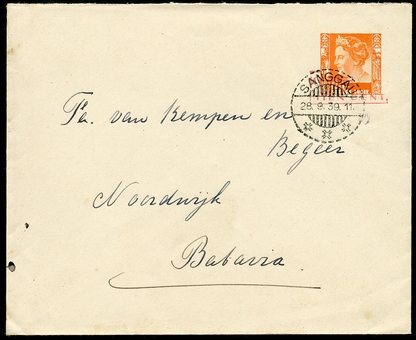 SANGGAU
TIEN CENT
28.9.39.11
Fa. van Kempen en
Begeer
Noordwijk
Batavia.